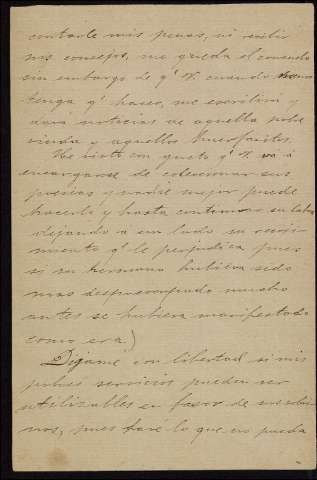 contarle mis penas, ni recibir
sus consejos, me queda el consuelo
sin embargo de qe V. cuando menos
tenga qe hacer, me escribira y
dará noticias de aquella pobre
viuda y aquellos huerfanitos.
He visto con gusto qe V. va á
encargarse de coleccionar sus
poesias y nadie mejor puede
hacerlo y hasta continuar su labor
dejando á un lado su
qe le perjudica pues
si su hermano hubiera sido
mas despreocupado mucho
antes se hubiera manifestado
como era)
Dígame con libertad si mis
pobres servicios pueden ser
utilizables en favor de sus
nos, pues haré lo que yo pueda